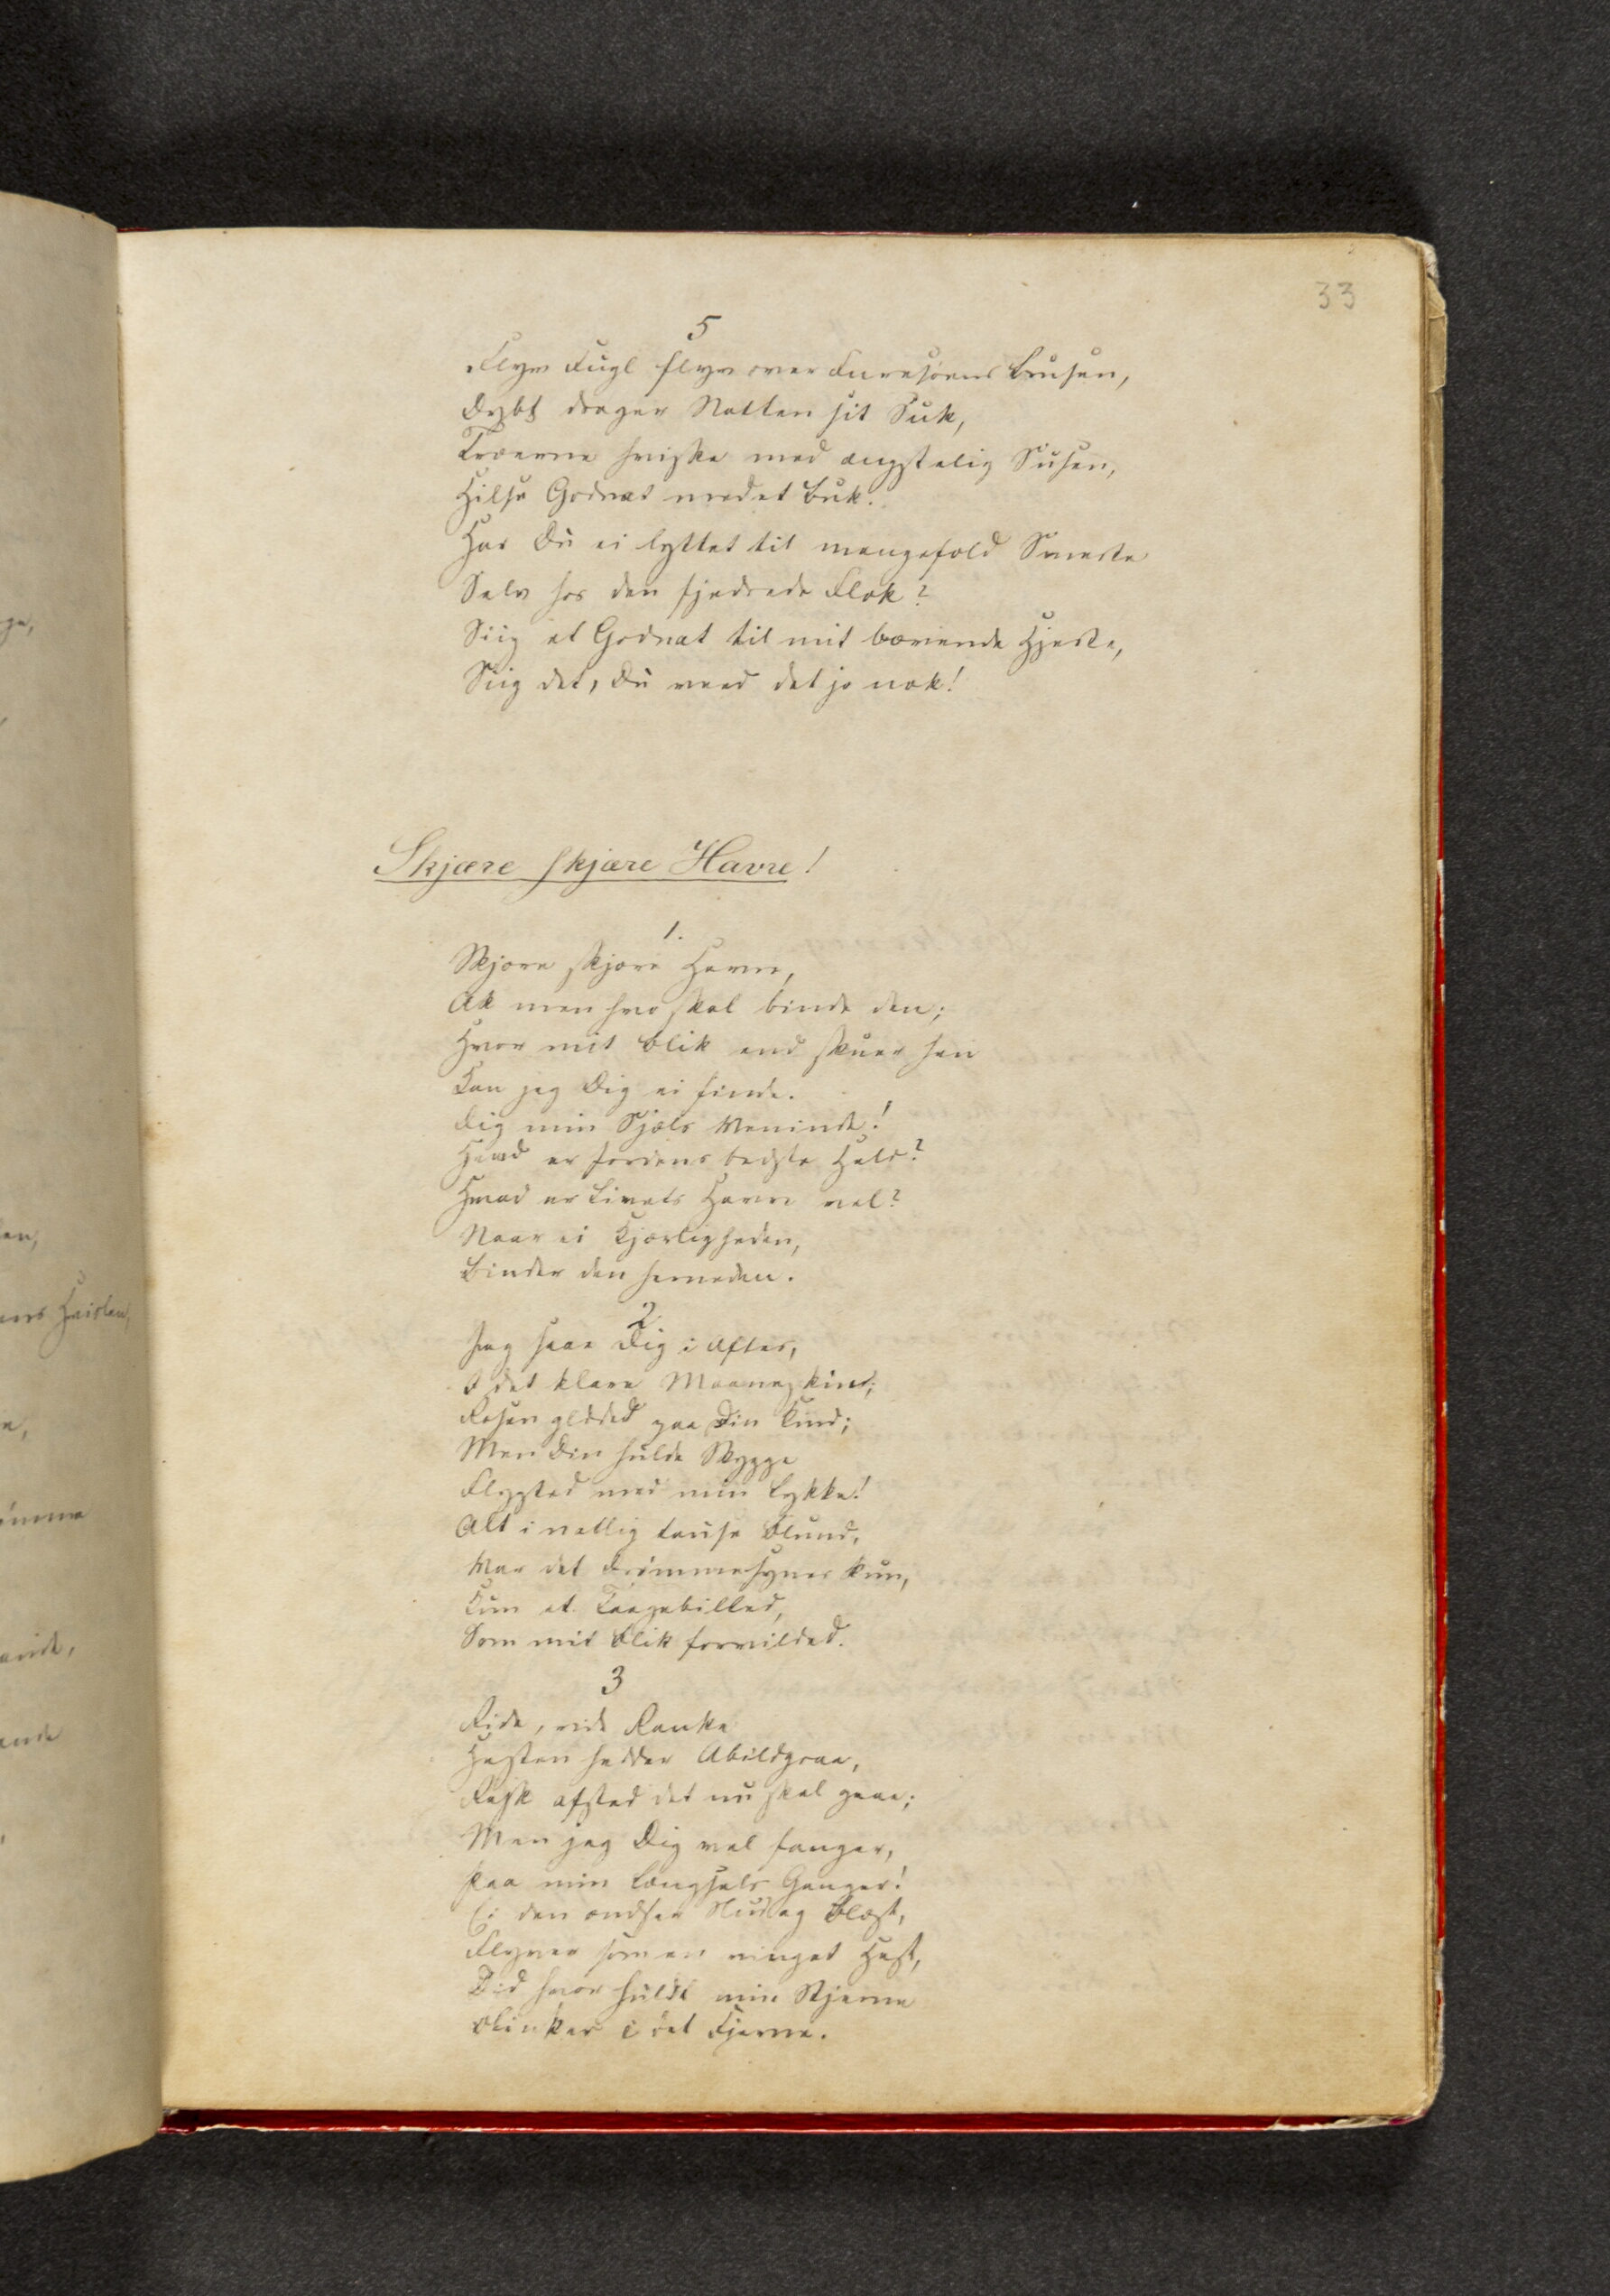 33
5
Flyv Fugl flyv over Furesøens Brusen,
Dybt drager Natten sit Suk,
Træerne hviske med ængstelig Susen,
Hilse Godnat med et Buk.
Har Du ei lyttet til mangefold Smerte
Selv hos den fjedrede Flok?
Siig et Godnat til mit bævende Hjerte,
Siig det, Du veed det jo nok!
Skjære skjære Havre!
1.
Skjære skjære Havre,
Ak men hvo skal binde den;
Hvor mit Blik end skuer hen
Kan jeg Dig ei finde.
Dig min Sjæls Veninde!
Hvad er Jordens bedste Held?
Hvad er Livets Havre vel?
Naar ei Kjærligheden,
Binder den herneden.
2.
Jeg saae Dig i Aftes,
I det klare Maaneskin;
Rosen glødded paa Din Kind;
Men Din hulde Skygge
Flygted med min Lykke!
Alt i natlig tause Blund,
Var det Drømmesyner kun,
Kun et Taagebilled,
Som mit Blik forvilded.
3
Ride, ride Ranke
Hesten hedder Abildgraa,
Rask afsted det nu skal gaae;
Men jeg Dig vel fanger,
Paa min Længsels Ganger!
Ei den ændser Slud og Blæst,
Flyver som en vinget Hest,
Did hvor huldt min Stjerne
Blinker i det Fjerne.